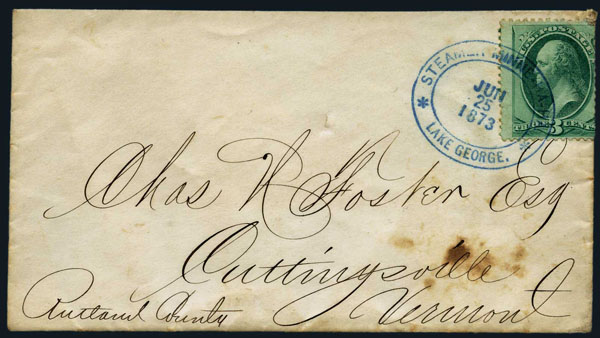 STEAMER MINNEHAHA
JUN
25
1873
LAKE GEORGE.
U.S. POSTAGE
THREE 3 CENTS
Chas N Foster Esq
Cuttingsville
Rutland County Vermont